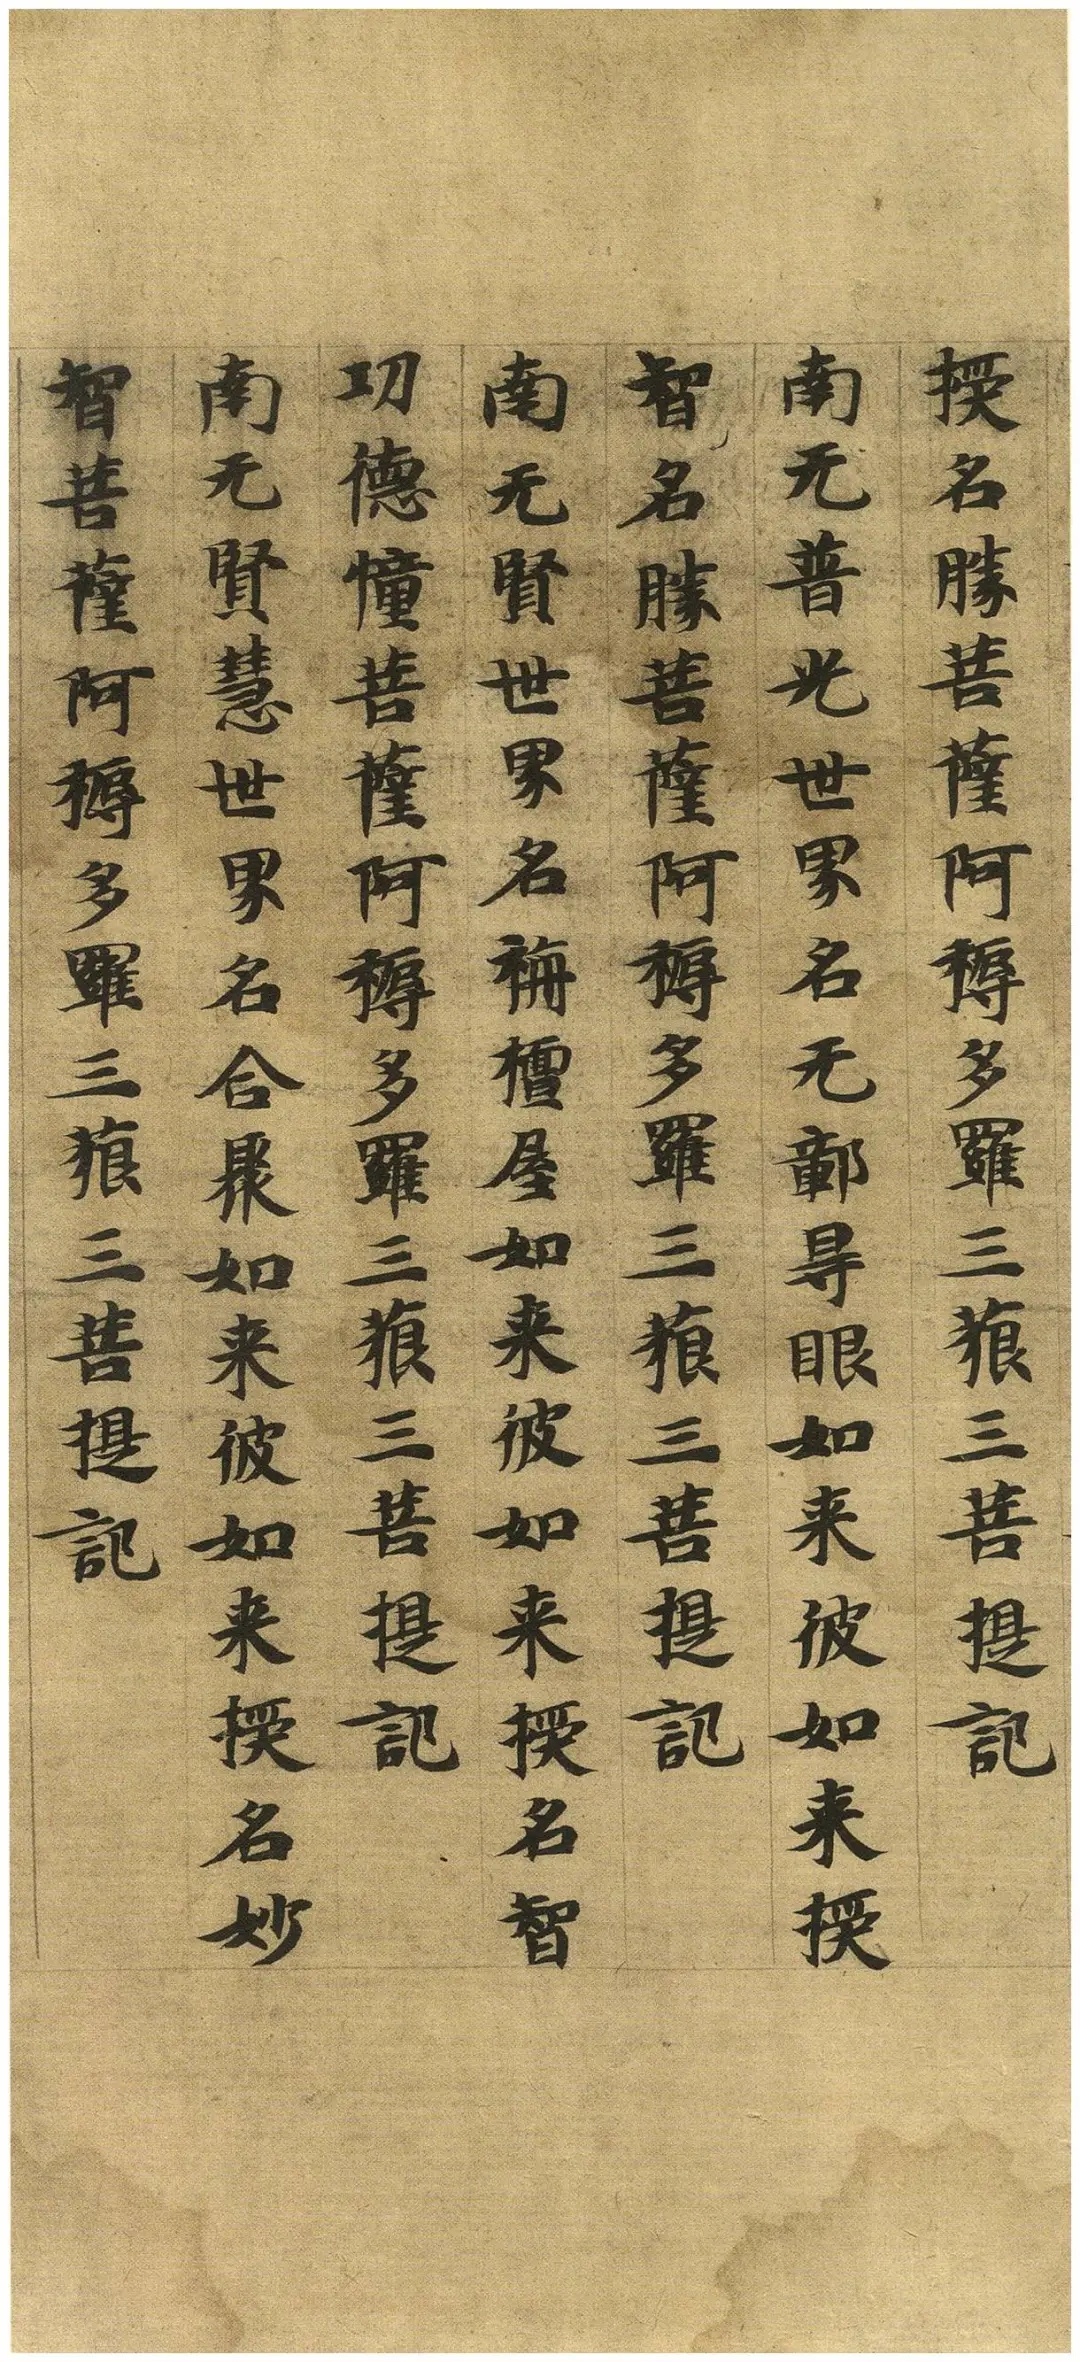 授名勝菩薩阿耨多羅三藐三菩提記
南无普光世界名无鄣㝵眼如来彼如来授
智名勝菩薩阿耨多羅三藐三菩提記
南无賢世界名栴檀屋如来彼如来授名智
功德憧菩薩阿耨多羅三藐三菩提記
南无賢慧世界名合聚如来彼如来授名妙
智菩薩阿耨多羅三藐三菩提記